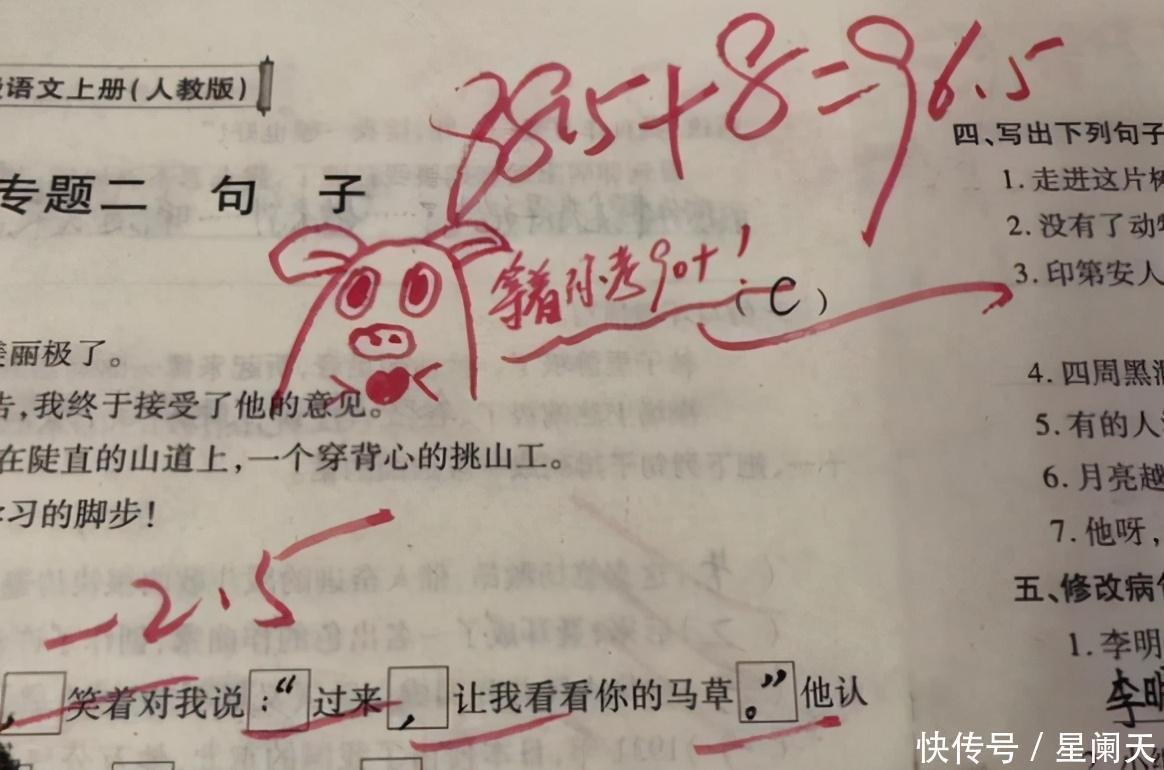 语文上册(人教版)
88.5+8=96.5
专题二 句 子
等着你考90+!
(C)
美丽极了。
告,我终于接受了他的意见。
在陡直的山道上,一个穿背心的挑山工。
学习的脚步!
-2.5
,笑着对我说:“过来,让我看看你的马草。”他认
四、写出下列句子
1.走进这片树
2.没有了动物
3.印第安人
4.四周黑洞
5.有的人
6.月亮越
7.他呀,
五、修改病句
1.李明
李明
快传号/星阑天